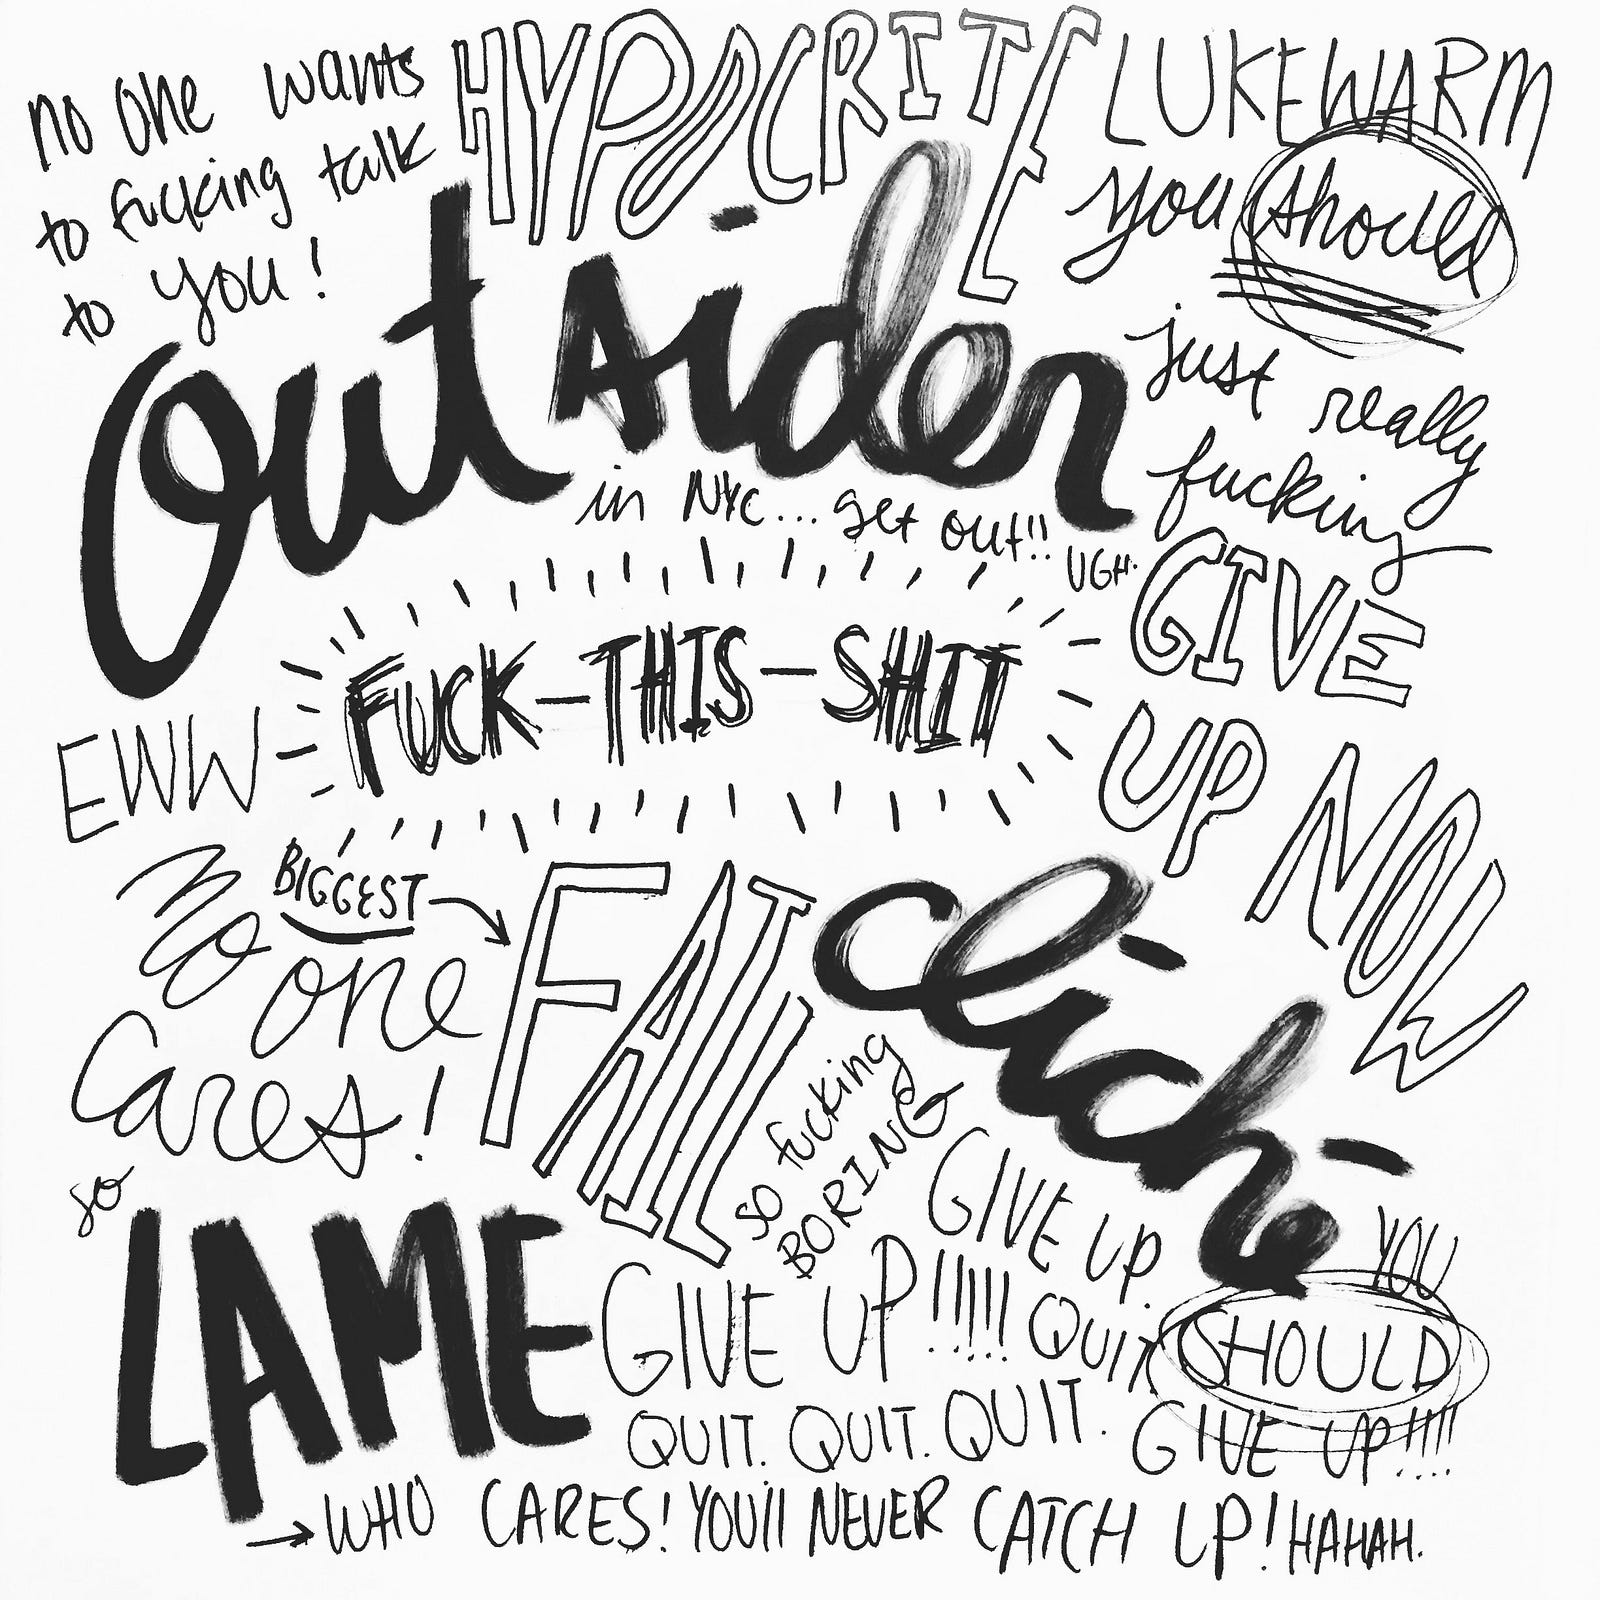 no one wants
to fucking talk
to you!
HYPOCRITE
LUKEWARM
you should
just really
fucking
GIVE
UP NOW
outsider
in NYC... get out!!
UGH.
FUCK-THIS-SHIT
EWW
BIGGEST
FAIL
No
one
cares!
cliche
so fucking
BORING
so
LAME
GIVE UP.
GIVE UP!!!!!
QUIT
QUIT. QUIT. QUIT.
YOU
SHOULD
GIVE UP!!!!
WHO CARES! YOU'll NEVER CATCH UP! HAHAH.